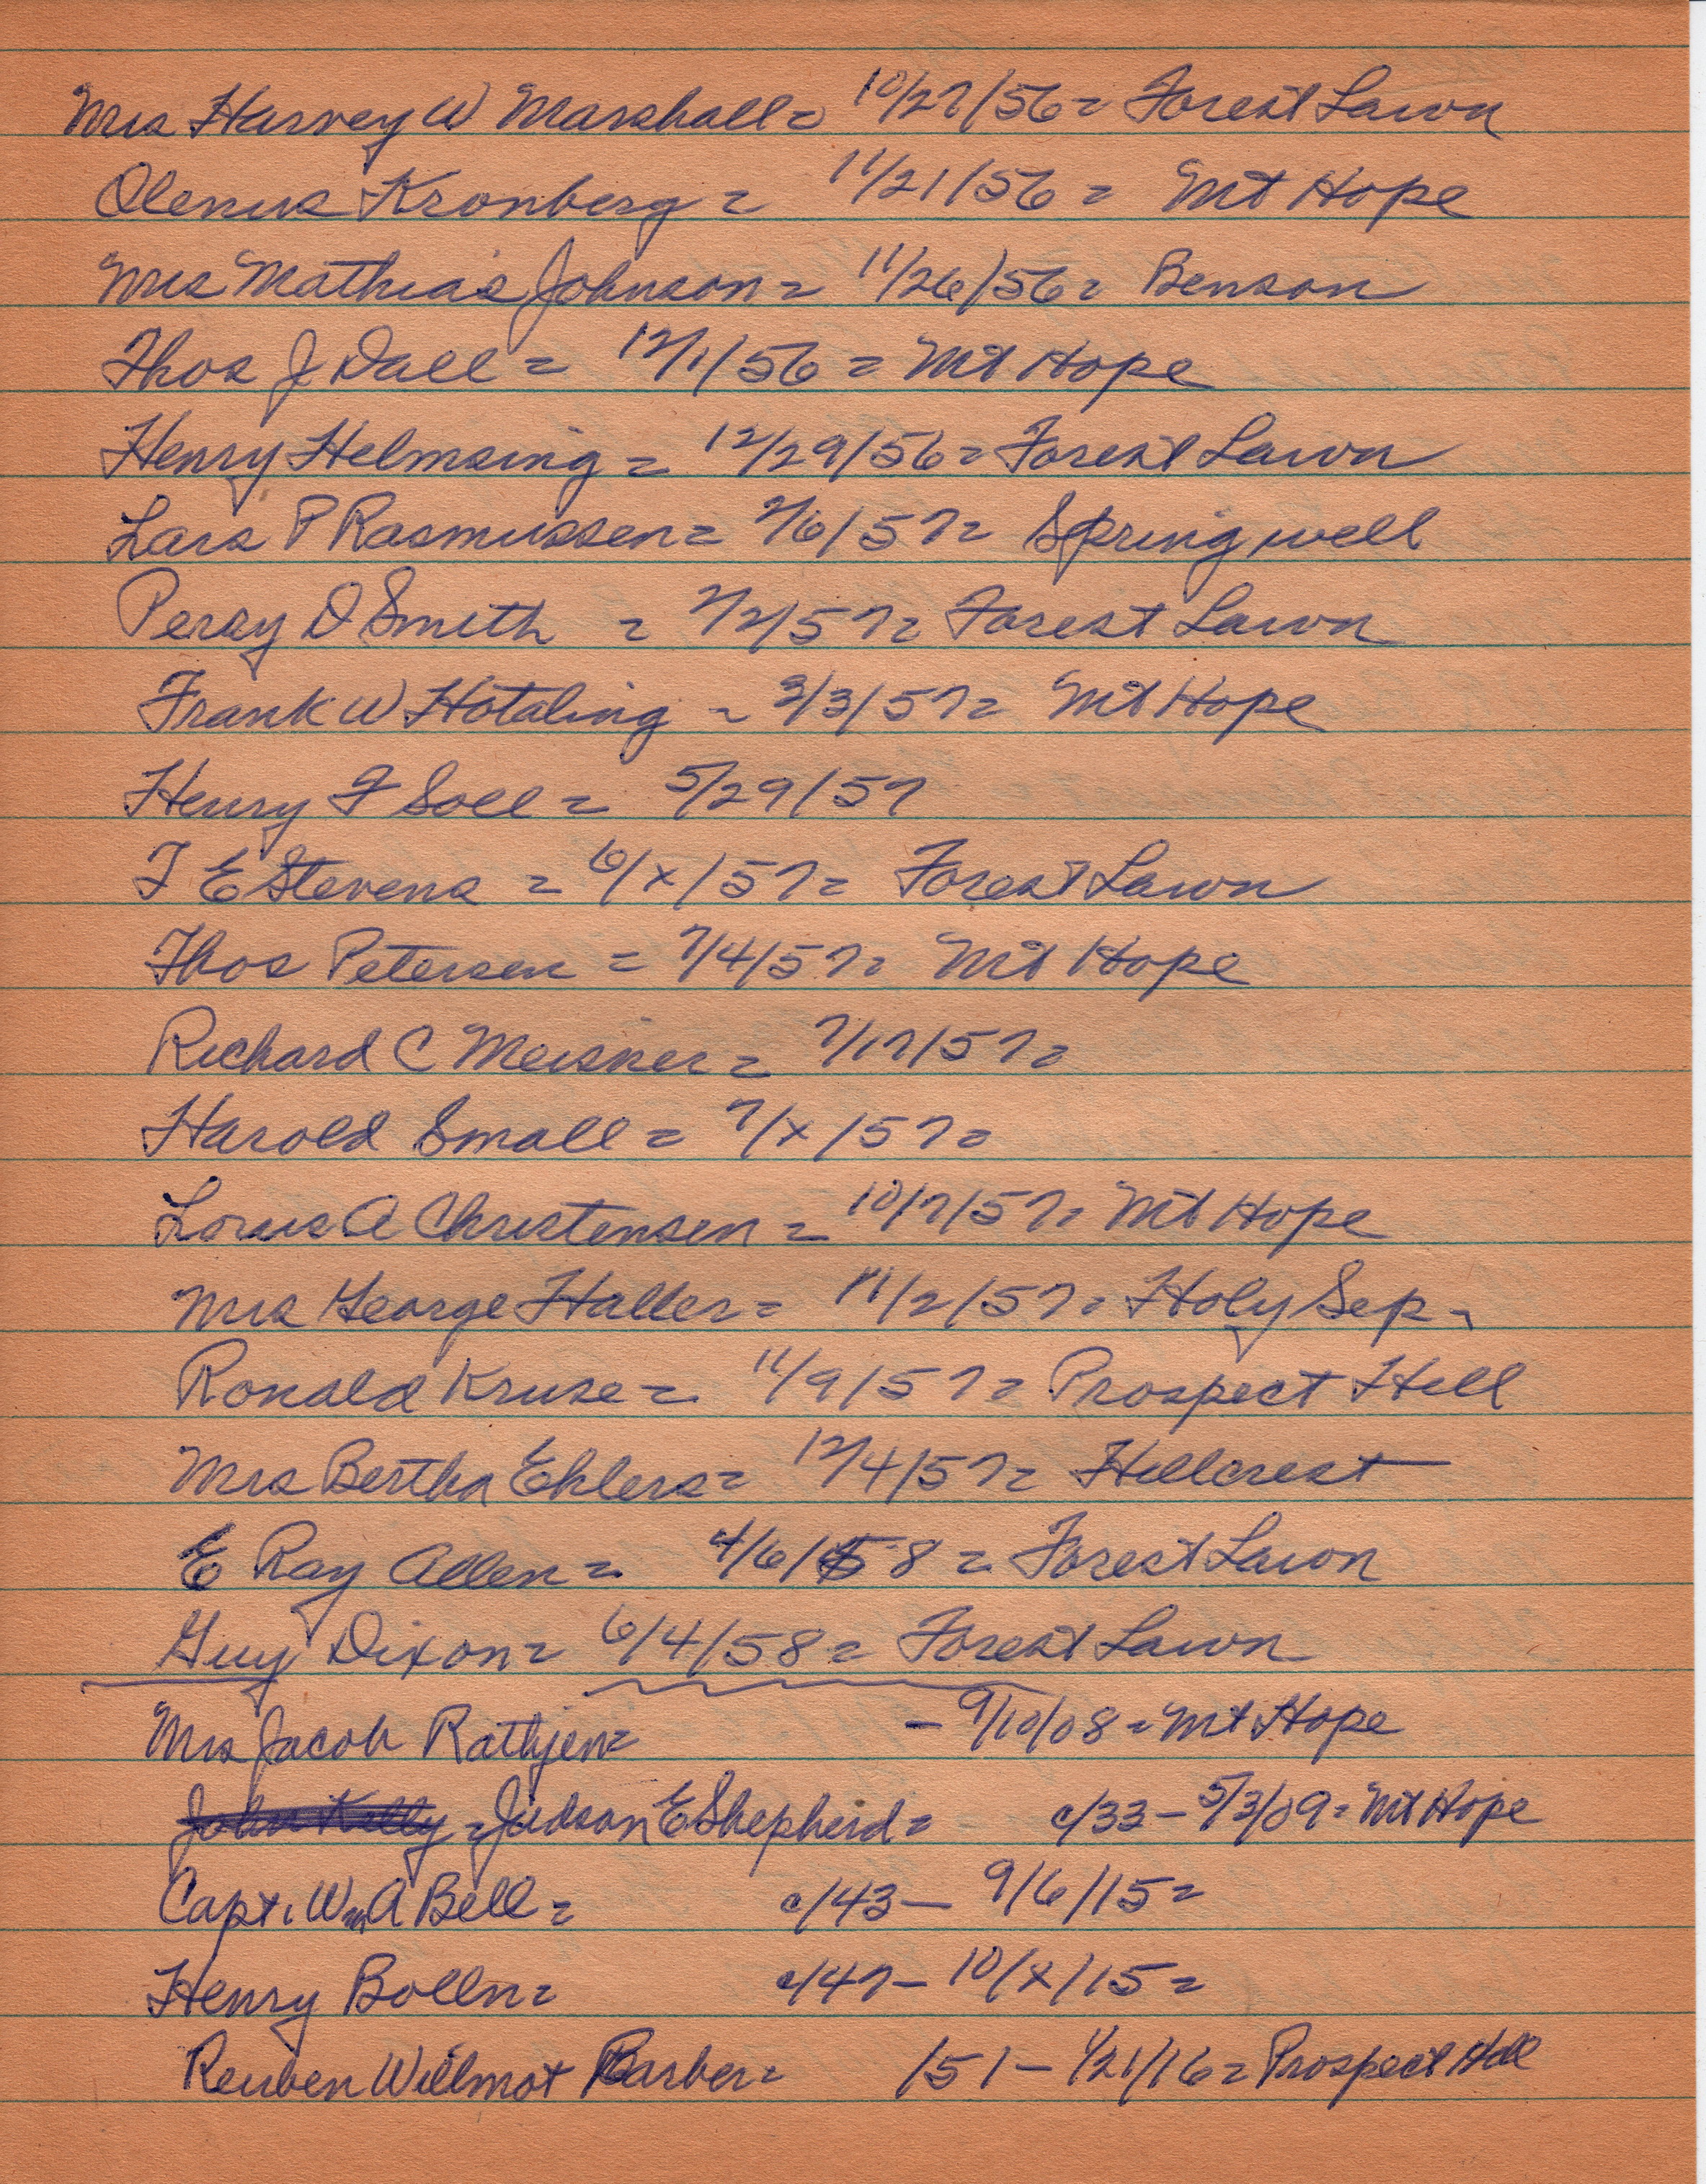 Mrs Harvey W Marshall = 10/27/56 = Forest Lawn
Olenus Kronberg = 11/21/56 = Mt Hope
Mrs Mathias Johnson = 11/26/56 = Benson
Thos J Dall = 12/1/56 = Mt Hope
Henry Helmsing = 12/29/56 = Forest Lawn
Lars P Rasmussen = 2/6/57 = Springwell
Percy D Smith = 2/2/57 = Forest Lawn
Frank W Hotaling = 3/3/57 = Mt Hope
Henry F Soll = 5/29/57
T E Stevens = 6/x/57 = Forest Lawn
Thos Petersen = 7/4/57 = Mt Hope
Richard C Meisner = 7/17/57 =
Harold Small = 7/x/57 =
Louis A Christensen = 10/7/57 = Mt Hope
Mrs George Haller = 11/2/57 = Holy Sep -
Ronald Kruse = 11/9/57 = Prospect Hill
Mrs Bertha Ehlers = 12/4/57 = Hillcrest
E Ray Allen = 4/6/58 = Forest Lawn
Guy Dixon = 6/4/58 = Forest Lawn
Mrs Jacob Rathjen = - 9/10/08 = Mt Hope
John Kelly = Judson E Shepherd = c/33 - 5/3/09 = Mt Hope
Capt. Wm A Bell = c/43 - 9/6/15 =
Henry Bolln = c/47 - 10/x/15 =
Reuben Willmot Barber = /51 - 1/21/16 = Prospect Hill